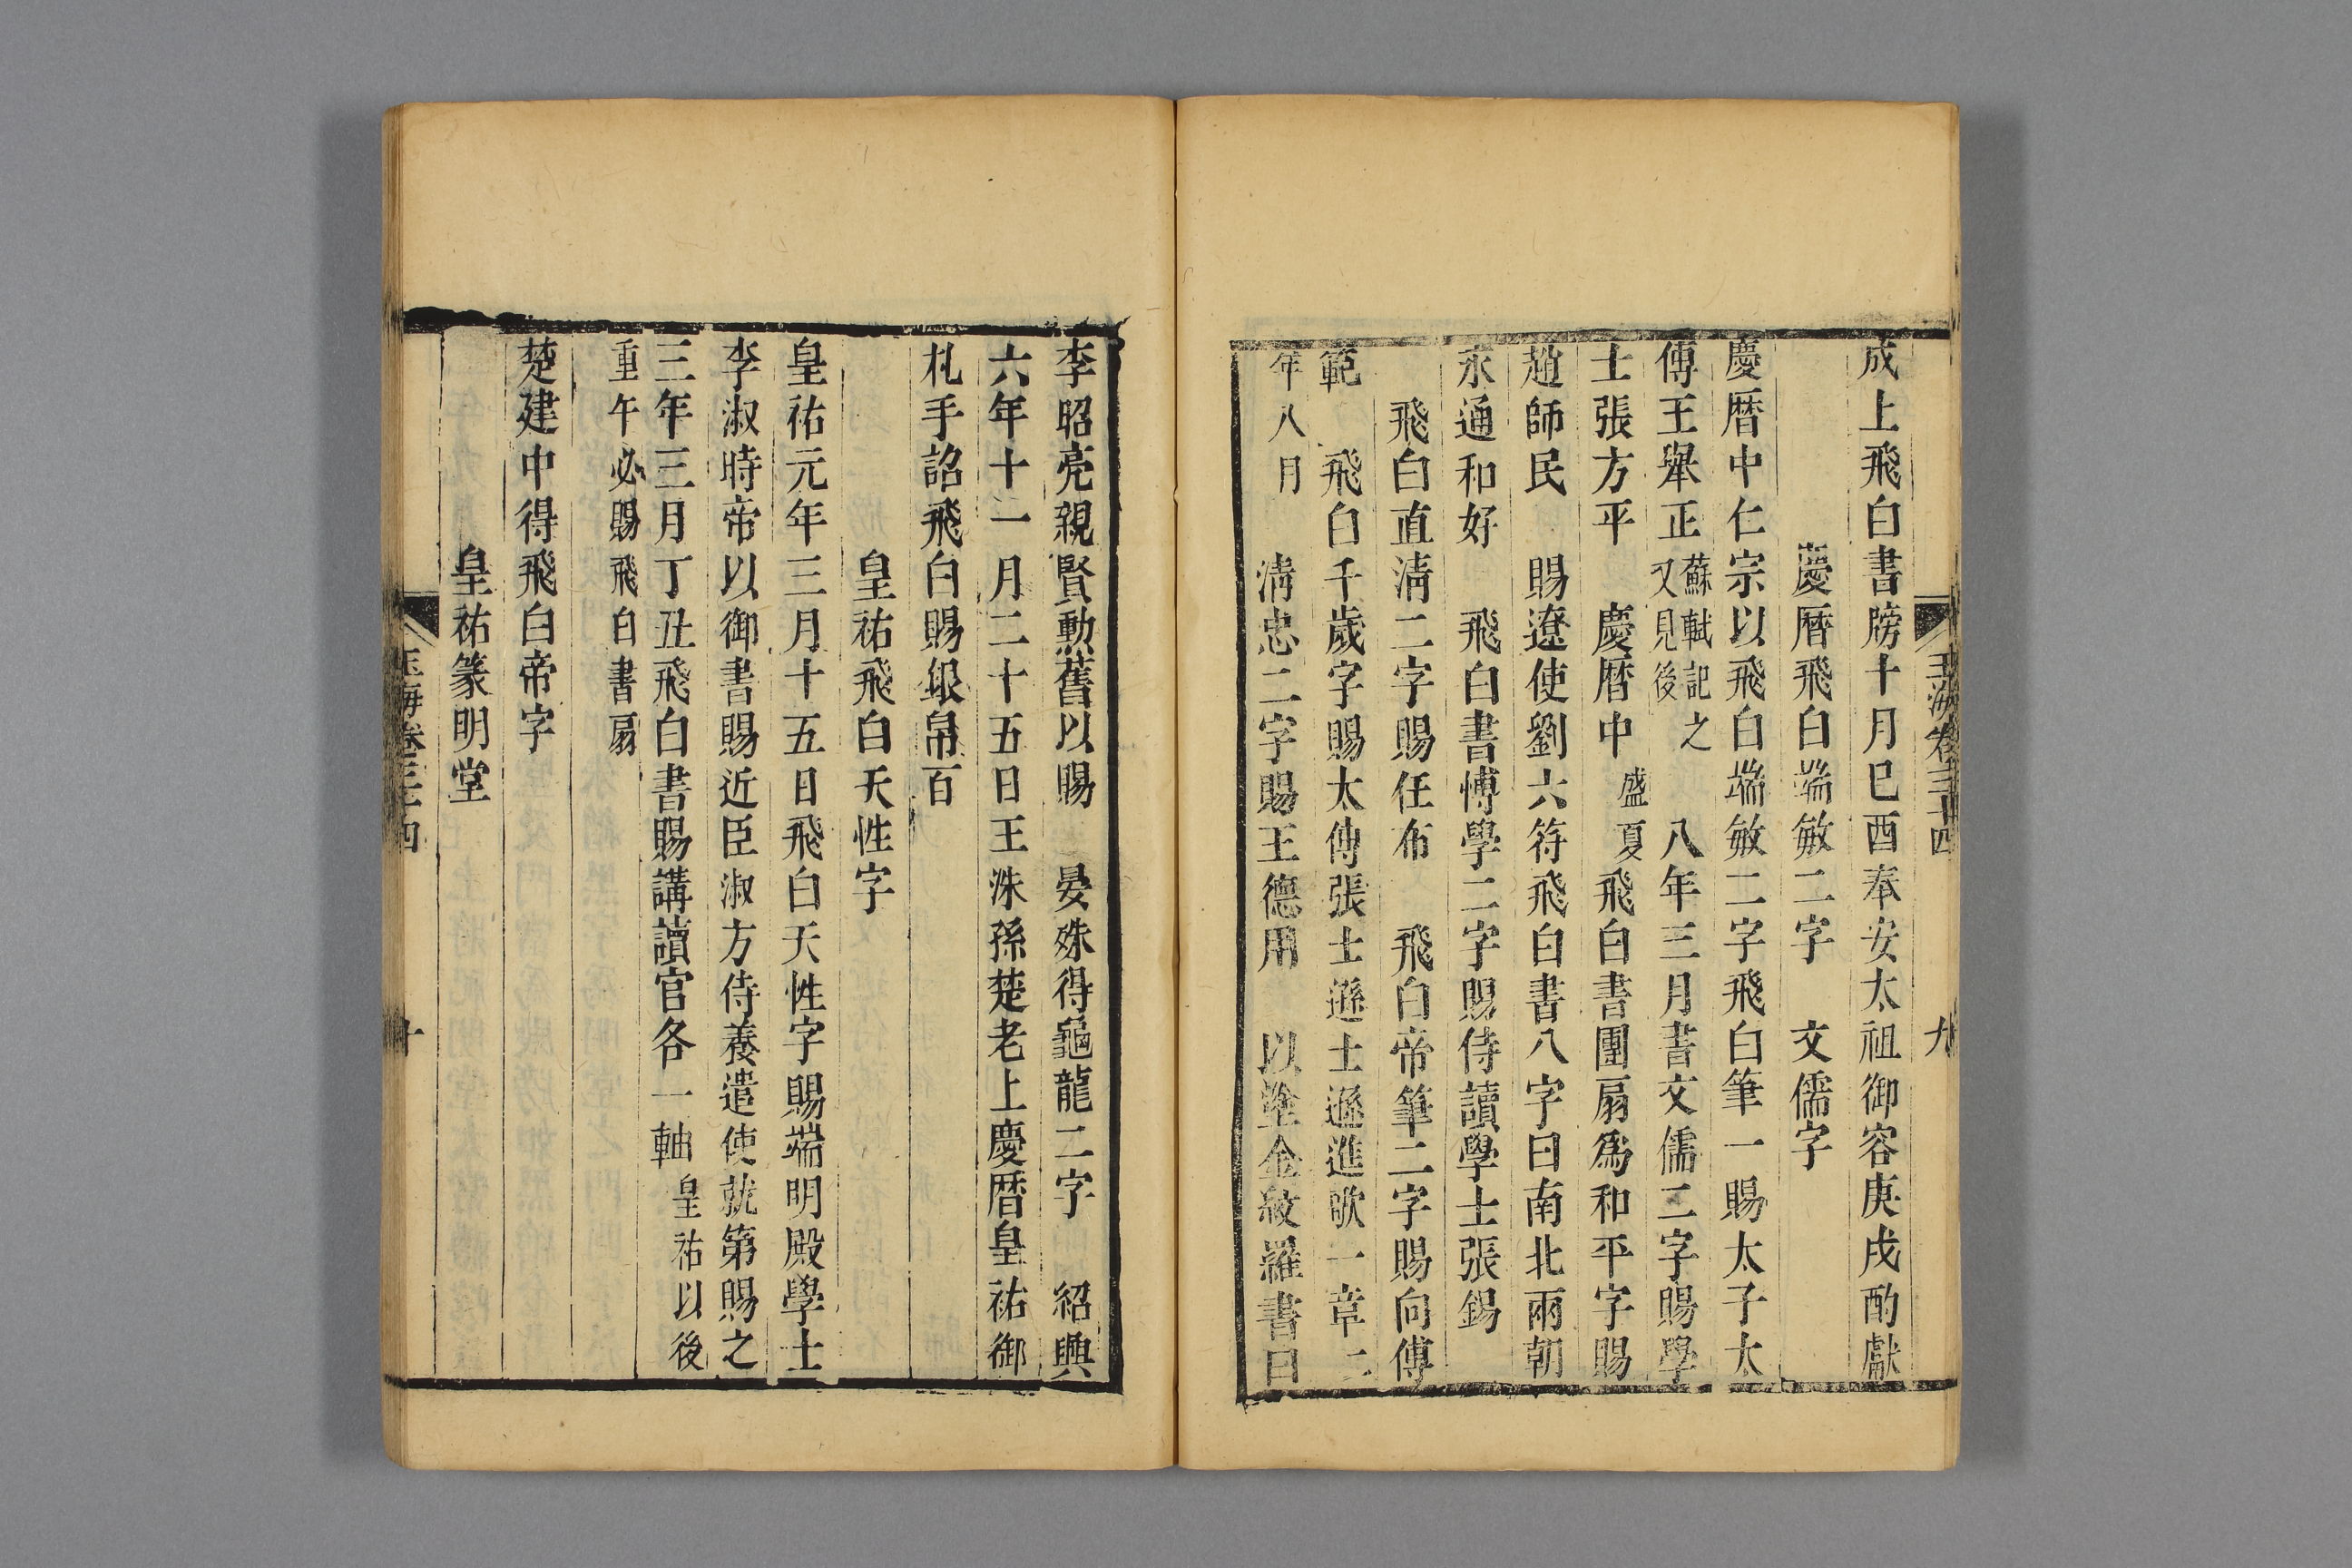 玉海卷三十四
九
成上飛白書牓十月巳酉奉安太祖御容庚戌酌獻
慶曆飛白端敏二字 文儒字
慶曆中仁宗以飛白端敏二字飛白筆一賜太子太
傅王舉正蘇軾記之又見後 八年三月書文儒二字賜學
士張方平 慶曆中盛夏飛白書團扇爲和平字賜
趙師民 賜遼使劉六符飛白書八字曰南北兩朝
永通和好 飛白書博學二字賜侍讀學士張錫
飛白直淸二字賜任布 飛白帝筆二字賜向傅
範 飛白千歲字賜太傅張士遜士遜進歌一章二
年八月 淸忠二字賜王德用 以塗金紋羅書曰
李昭亮親賢勳舊以賜 晏殊得龜龍二字 紹興
六年十一月二十五日王洙孫楚老上慶曆皇祐御
札手詔飛白賜銀帛百
皇祐飛白天性字
皇祐元年三月十五日飛白天性字賜端明殿學士
李淑時帝以御書賜近臣淑方侍養遣使就第賜之
三年三月丁丑飛白書賜講讀官各一軸皇祐以後
重午必賜飛白書扇
楚建中得飛白帝字
皇祐篆明堂
玉海卷三十四
十